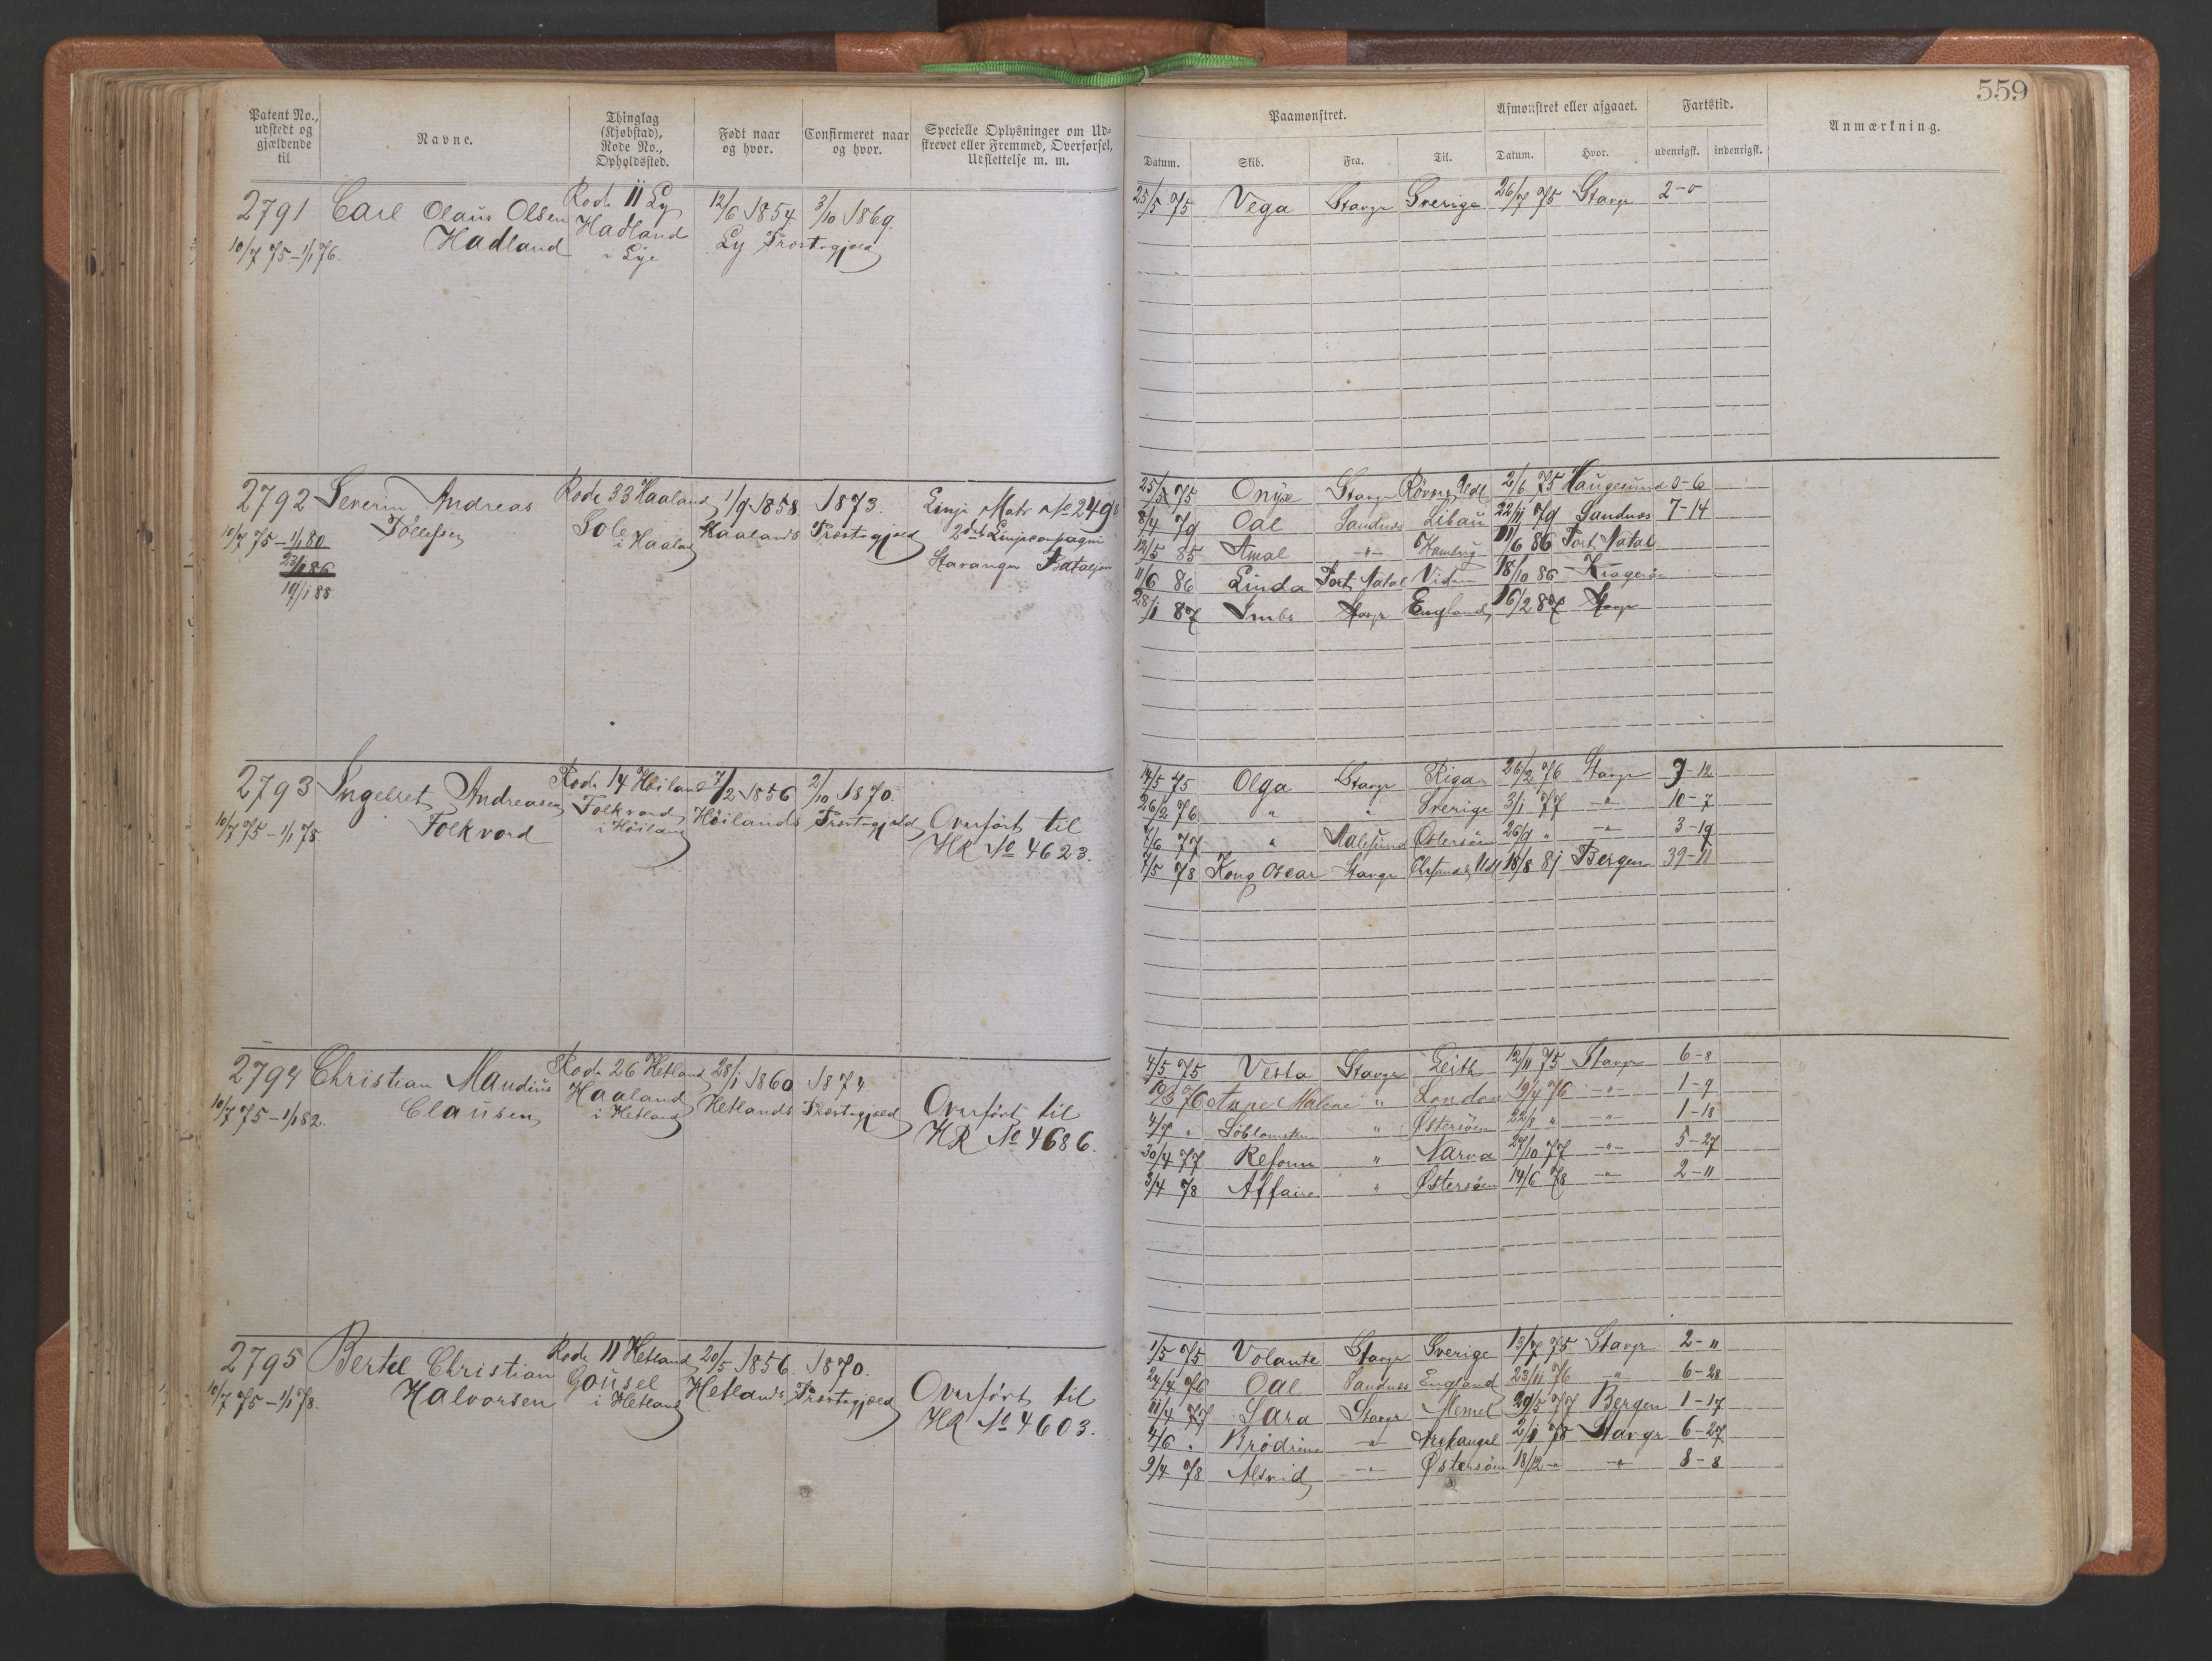 559
Patent No., udstedt og gjældende til
Navne.
Thinglag (Kjøbstad), Rode No., Opholdssted.
Født naar og hvor.
Confirmeret naar og hvor.
Specielle Oplysninger om Udskrevet eller Fremmed, Overførsel, Udslettelse m. m.
Paamønstret.
Afmønstret eller afgaaet.
Fartstid.
Anmærkning.
Datum. Skib. Fra. Til. Datum. Hvor. udenrigsk. indenrigsk.
2791 Carl Olaus Olsen Rode 11 Ly 12/6 1854 3/10 1869.
10/7 75 - 1/1 76. Hadland Hadland Ly Præstegjæld
i Lye
25/5 75 Vega Stavgr Sverige 26/7 75 Stavgr 2-0
2792 Severin Andreas Rode 33 Haaland 1/9 1858. 1873. Linje Matr No 249
10/7 75 - 1/1 80 Tollefsen Sole Haalands Præstegjæld 2det Linjecompagni
23/1 86 i Haaland Stavanger Bataljon
19/1 88
25/5 75 Onyx Stavgr 2/6 75 Haugesund 0-6
8/4 79 Oal Sandnæs Libau 22/11 79 Sandnæs 7-14
12/5 85 Amal -"- Hamburg 11/6 86 Port Natal
11/6 86 Linda Port Natal 18/10 86 Kragerøe
28/1 87 Stavgr England 16/2 87 Stavgr
2793 Ingebret Andreasen Rode 14 Høiland 7/2 1856 2/10 1870.
10/7 75 - 1/1 75 Folkvord Folkvord Høilands Præstegjæld Overført til
i Høiland HR No 4623.
14/5 75 Olga Stavgr Riga 26/2 76 Stavgr 9-12
26/2 76 " " Sverige 3/1 77 -"- 10-7
7/6 77 " Aalesund Østersøen 26/9 " -"- 3-19
7/5 78 Kong Oscar Stavgr 18/8 81 Bergen 39-11
2794 Christian Maudius Rode 26 Hetland 28/1 1860 1874
10/7 75 - 1/1 82. Clausen Haaland Hetlands Præstegjæld Overført til
i Hetland HR No 4686.
4/5 75 Vesta Stavgr Leith 12/11 75 Stavgr 6-8
10/3 76 Anne Malene " London 19/4 76 -"- 1-9
4/7 " Søblomsten " Østersøen 22/8 " -"- 1-18
30/4 77 Reform " Narva 27/10 77 -"- 5-27
3/4 78 Affaire " Østersøen 14/6 78 -"- 2-11
2795 Bertel Christian Rode 11 Hetland 20/5 1856. 1870.
10/7 75 - 1/1 78. Halvorsen Gousel Hetlands Præstegjæld Overført til
i Hetland HR No 4603.
1/5 75 Volante Stavgr Sverige 13/7 75 Stavgr 2-"
24/4 76 Oal Sandnæs England 23/11 76 -"- 6-28
11/4 77 Sara Stavgr Memel 29/5 77 Bergen 1-17
4/6 " Brødrene -"- Archangel 2/1 78 Stavgr 6-27
9/4 78 Astrid -"- Østersøen 18/12 -"- -"- 8-8